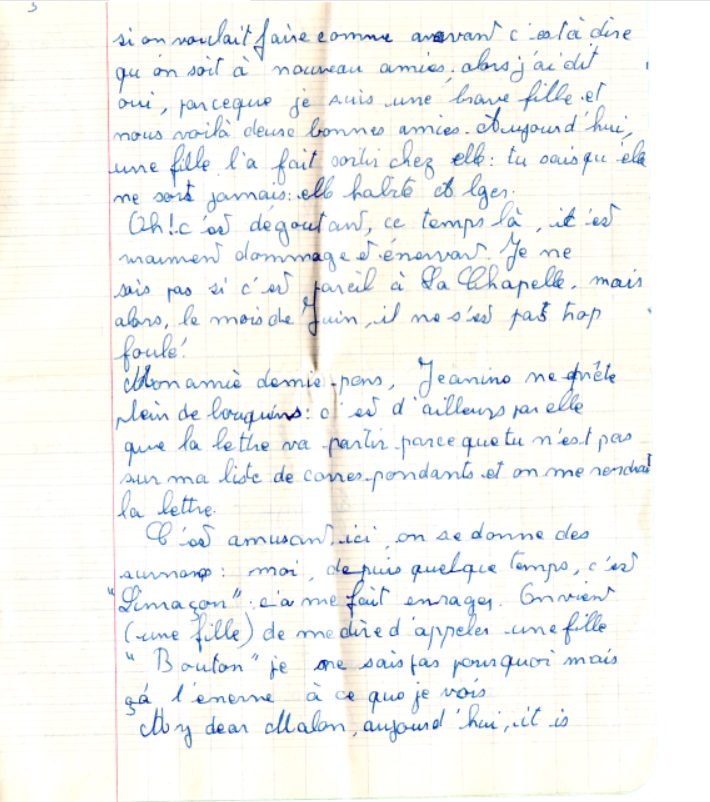 3
si on voulait faire comme avavant c'est à dire
qu'on soit à nouveau amies, alors j'ai dit
oui, parceque je suis une brave fille et
nous voilà deuse bonnes amies. Aujourd'hui,
une fille l'a fait sortir chez elle: tu sais qu'elle
ne sort jamais: elle habite Alger.
Oh! c'est dégoutant, ce temps là, it est
vraiment dommage et énervant. Je ne
sais pas si c'est pareil à La Chapelle, mais
alors, le mois de Juin, il ne s'est pas trop
foulé!
Mon amie demie-pens, Jeanine me prête
plein de bouquins: c'est d'ailleurs par elle
que la lettre va partir parce que tu n'est pas
sur ma liste de correspondants et on me rendrait
la lettre.
C'est amusant ici, on se donne des
surnoms: moi, depuis quelque temps, c'est
"Limaçon": ça me fait enrager. On vient
(une fille) de me dire d'appeler une fille
"Bouton" je ne sais pas pourquoi mais
çà l'enerve à ce que je vois
My dear Malon, aujourd'hui, it is